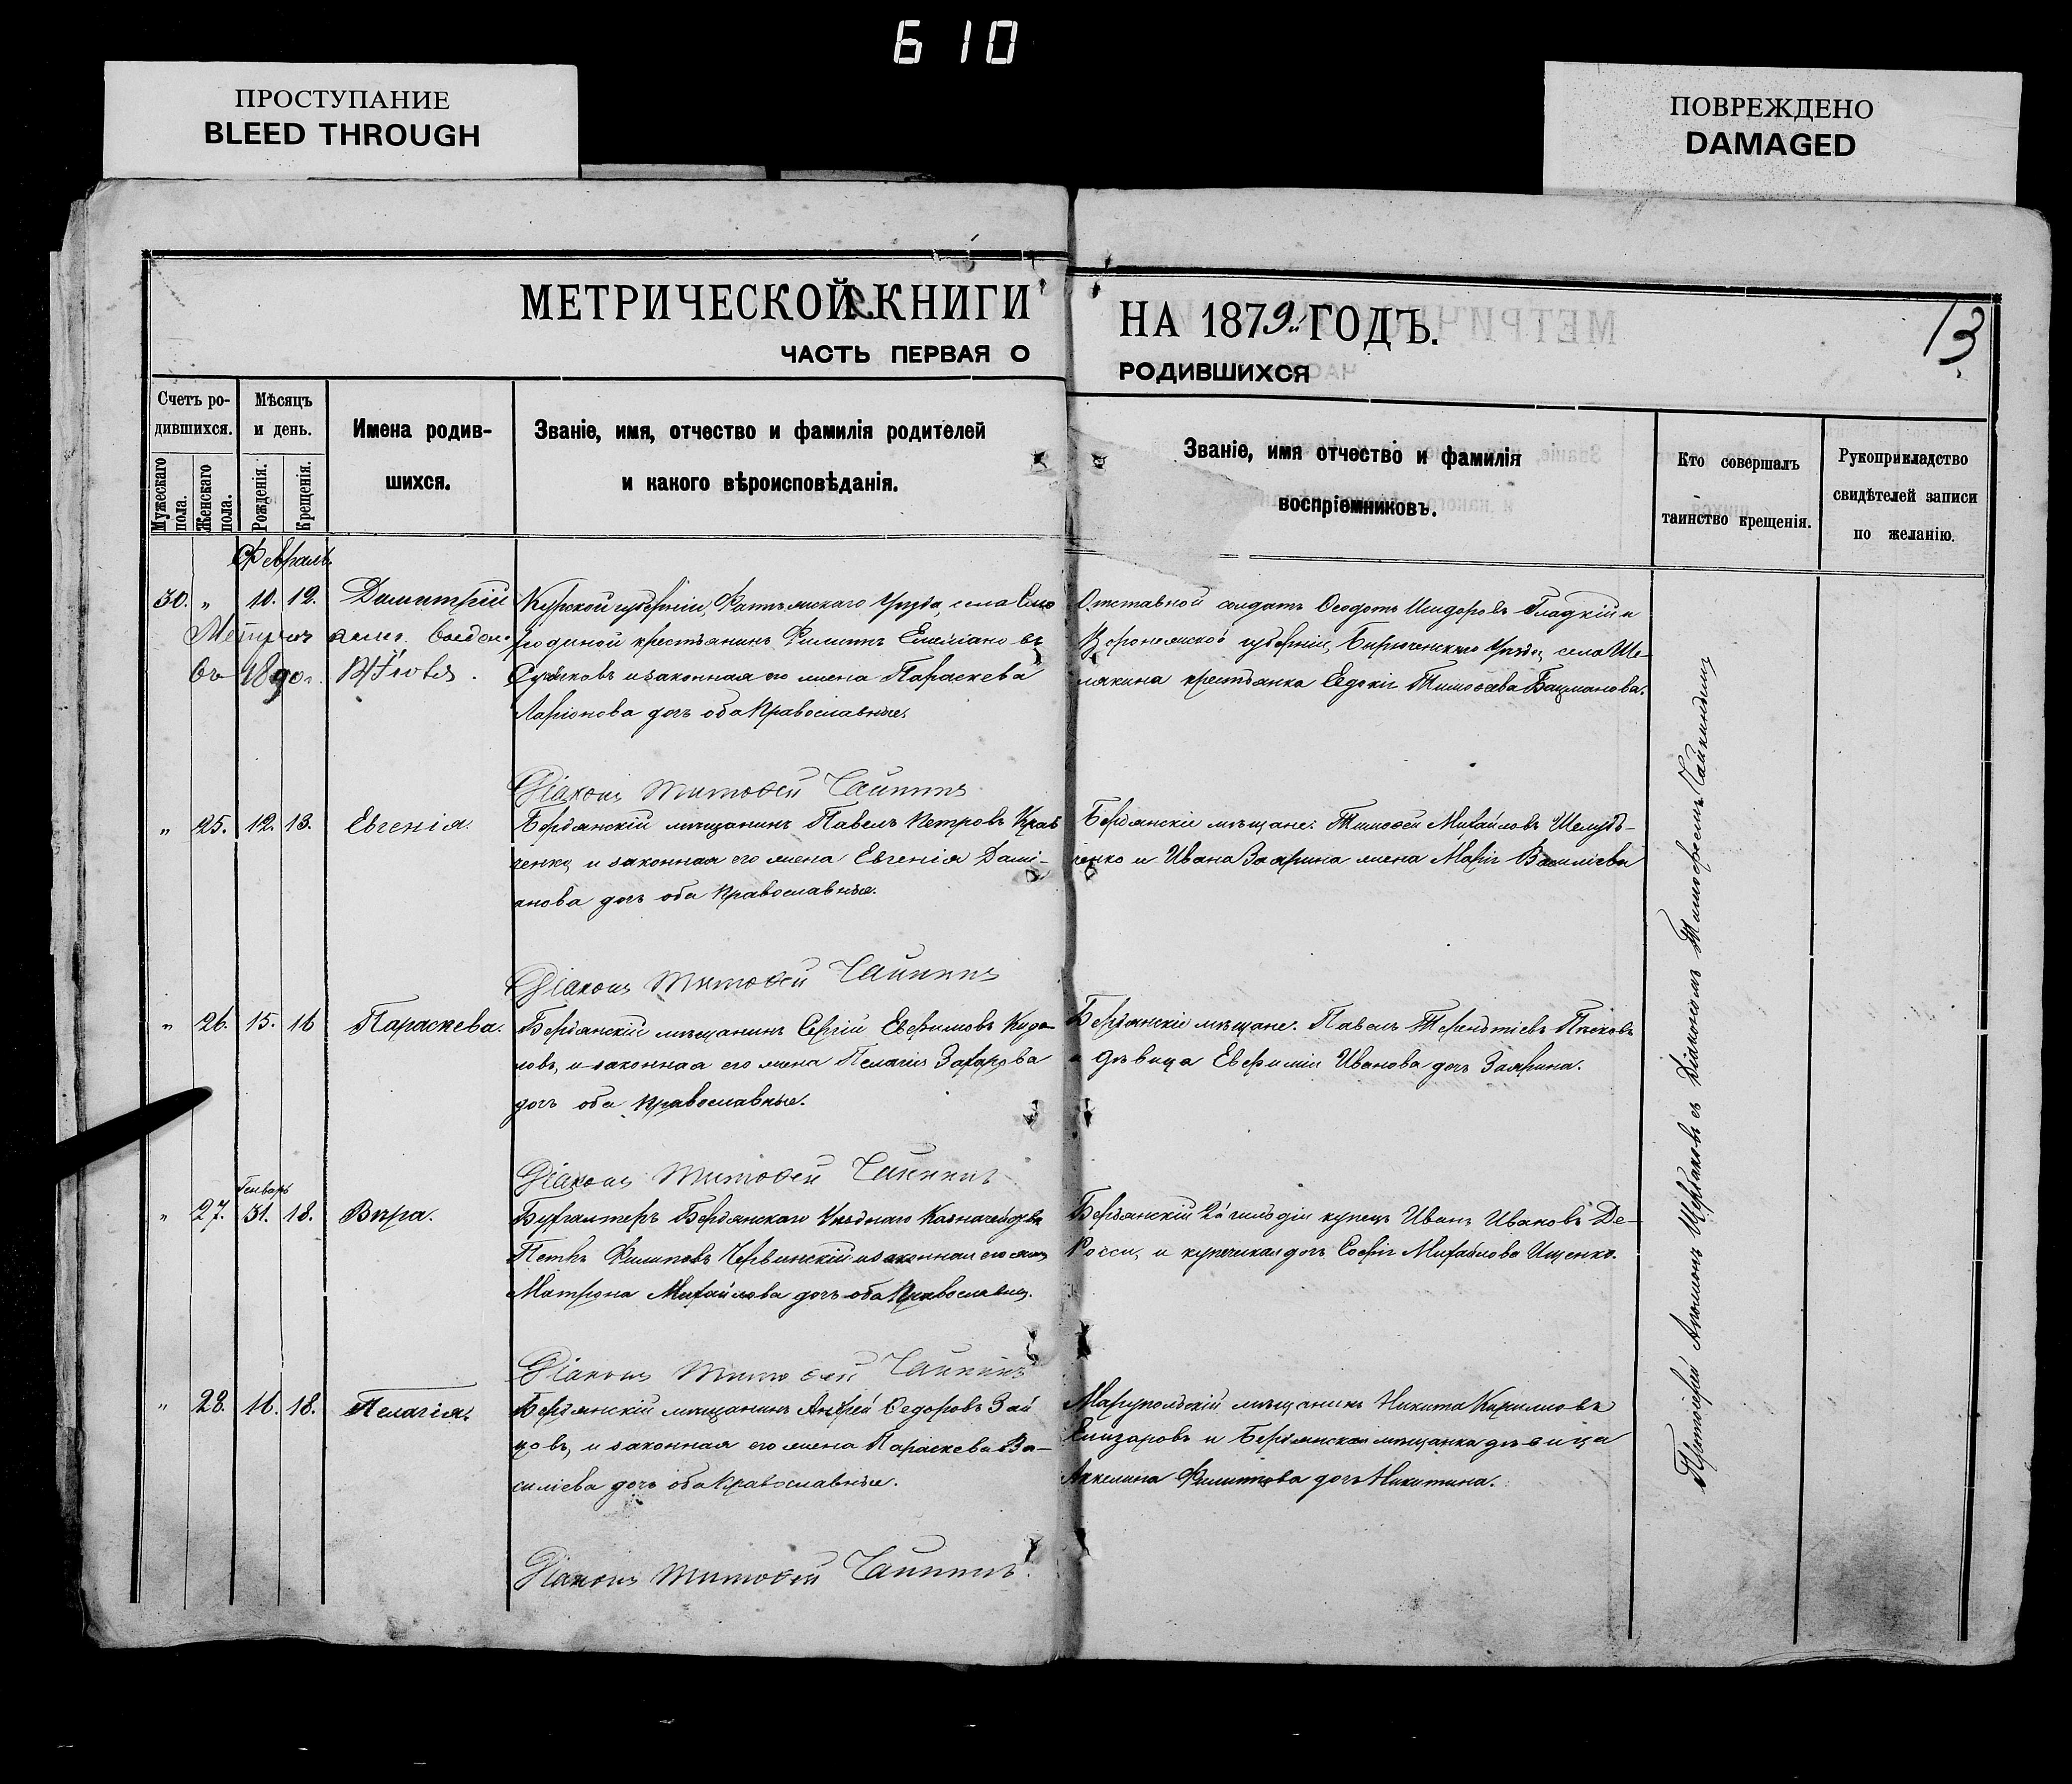 610
ПРОСТУПАНИЕ
BLEED THROUGH
ПОВРЕЖДЕНО
DAMAGED
МЕТРИЧЕСКОЙ КНИГИ
НА 1879 ГОДЪ.
13
ЧАСТЬ ПЕРВАЯ О
РОДИВШИХСЯ
Счетъ ро-
дившихся.
Мужескаго пола.
Женскаго пола.
Мѣсяцъ
и день.
Рожденія.
Крещенія.
Имена родив-
шихся.
Званіе, имя, отчество и фамилія родителей
и какого вѣроисповѣданія.
Званіе, имя отчество и фамилія
воспріемниковъ.
Кто совершалъ
таинство крещенія.
Рукоприкладство
свидѣтелей записи
по желанію.
Февраль
30. " 10. 12. Димитрій
въ 1890 г.
Курской губерніи, Фатежскаго Уѣзда села Смо
родиной крестьянинъ Филиппъ Емеліановъ
и законная его жена Параскева
Ларіонова дочь оба Православные.
Отставной солдатъ Ѳеодотъ Исидоровъ Гладкій и
Воронежской губерніи, Бирюченскаго Уѣзда, села Ше-
лякина крестьянка Евдокія Тимоѳеева Бацманова.
Діаконъ Тимоѳей Чайкинъ
" 25. 12. 13. Евгенія.
Бердянскій мѣщанинъ Павелъ Петровъ Крав
ченко, и законная его жена Евгенія Дамі-
анова дочь оба Православные.
Бердянскіе мѣщане: Тимоѳей Михайловъ Шелудь-
ченко и Ивана Заярина жена Марія Василіева
Діаконъ Тимоѳей Чайкинъ
" 26. 15. 16 Параскева.
Бердянскій мѣщанинъ Сергій Евфимовъ
и законная его жена Пелагія Захарова
дочь оба Православные.
Бердянскіе мѣщане: Павелъ Терентіевъ Пѣсковъ
и дѣвица Евфимія Иванова дочь Заярина.
Діаконъ Тимоѳей Чайкинъ
Генварь
" 27. 31. 18. Вѣра.
Бухгалтеръ Бердянскаго Уѣзднаго Казначейства
Петръ Филиповъ Червинскій и законная его жена
Матрона Михайлова дочь оба Православны.
Бердянскій 2й гильдіи купецъ Иванъ Ивановъ Де-
Росси, и купеческая дочь Софія Михайлова Ищенко.
Діаконъ Тимоѳей Чайкинъ
" 28. 16. 18. Пелагія
Бердянскій мѣщанинъ Андрей Ѳедоровъ Зай
цовъ, и законная его жена Параскева Ва-
силіева дочь оба Православные.
Маріупольскій мѣщанинъ Никита Кириловъ
Елизаровъ и Бердянская мѣщанка дѣвица
Акилина Филиппова дочь Никитина.
Діаконъ Тимоѳей Чайкинъ.
Протоіерей Щербаковъ съ Діакономъ Тимоѳеемъ Чайкинымъ